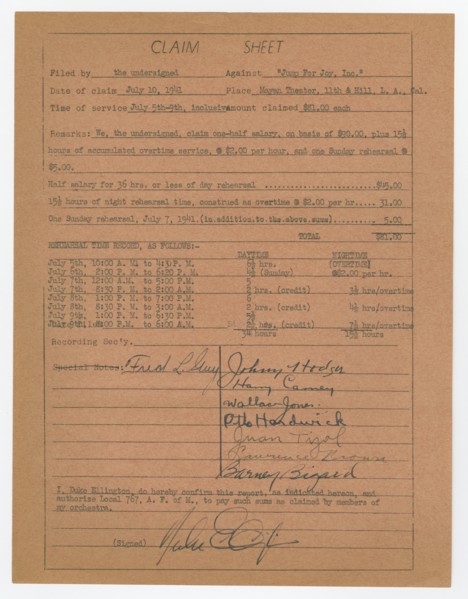 CLAIM SHEET
Filed by the undersigned Against "Jump For Joy, Inc."
Date of claim July 10, 1941 Place Mayan Theater, 11th & Hill, L. A., Cal.
Time of service July 5th-9th, inclusive Amount claimed $81.00 each
Remarks: We, the undersigned, claim one-half salary, on basis of $90.00, plus 15½
hours of accumulated overtime service, @ $2.00 per hour, and one Sunday rehearsal @
$5.00.
Half salary for 36 hrs. or less of day rehearsal .................. $45.00
15½ hours of night rehearsal time, construed as overtime @ $2.00 per hr.... 31.00
One Sunday rehearsal, July 7, 1941.(in addition to the above sums)....... 5.00
TOTAL $81.00
REHEARSAL TIME RECORD, AS FOLLOWS:- DAYTIME NIGHTTIME
July 5th, 10:00 A. M. to P. M. hrs. (OVERTIME)
July 6th, 2:00 P. M. to 6:20 P. M. (Sunday) @$2.00 per hr.
July 7th, 12:00 A.M. to 5:00 P.M. 5
July 7th, 8:30 P.M. to 2:00 A.M. 2 hrs. (credit) 3½ hrs/overtime
July 8th, 1:00 P.M. to 7:00 P.M. 6
July 8th, P.M. to A.M. 2 hrs. (credit) 4½ hrs/overtime
July 9th, 1:00 P.M. to 6:30 P.M. 5½
P.M. to 6:00 A.M. hrs. (credit) 7½ hrs/overtime
hours 15½ hours
Recording Sec'y.
Special Notes: Fred L. Guy Johnny Hodges
Harry Carney
Wallace Jones
Otto Hardwick
Juan Tizol
Lawrence Brown
Barney Bigard
I, Duke Ellington, do hereby confirm this report, as indicated hereon, and
authorize Local 767, A. F. of M., to pay such sums as claimed by members of
my orchestra.
(Signed)